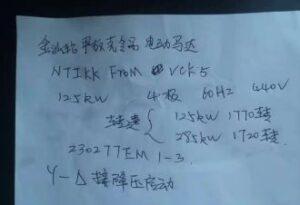 电动马达
NTIKK From VCK5
125kw 4极 60HZ 440V
转速 { 125kw 1770转
285kw 1720转.
230277EM 1-3.
Y-△ 接降压启动